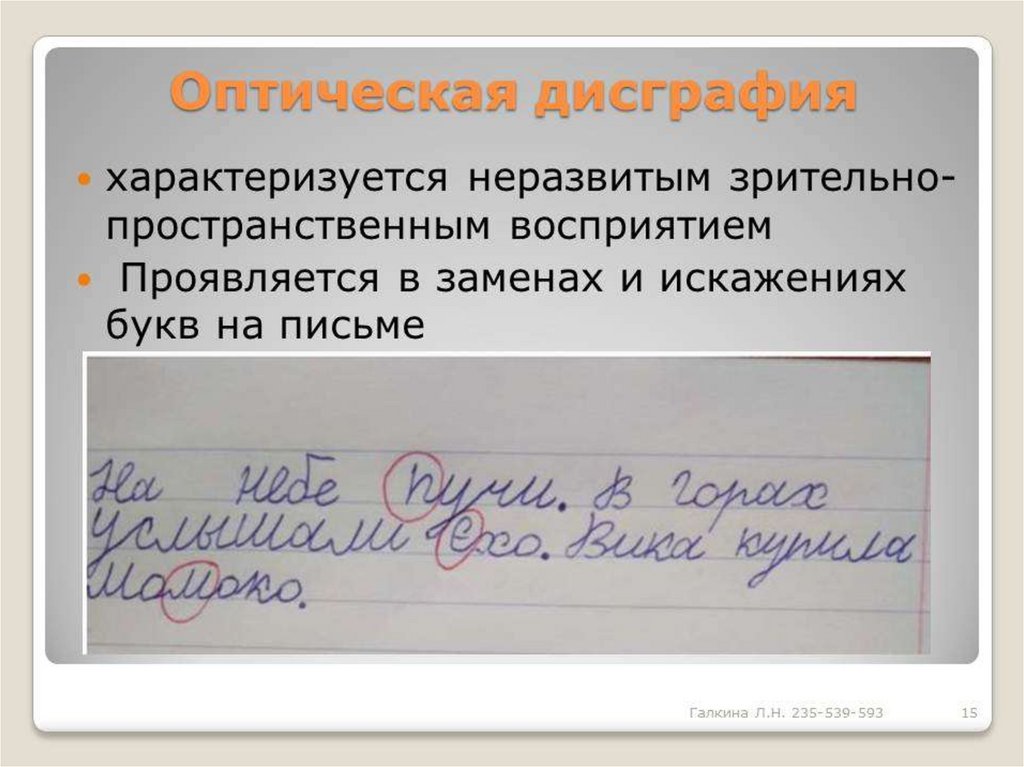 Оптическая дисграфия
• характеризуется неразвитым зрительно-
пространственным восприятием
• Проявляется в заменах и искажениях
букв на письме
На небе пучи. В горах
услышами єхо. Вика купила
момоко.
Галкина Л.Н. 235-539-593 15